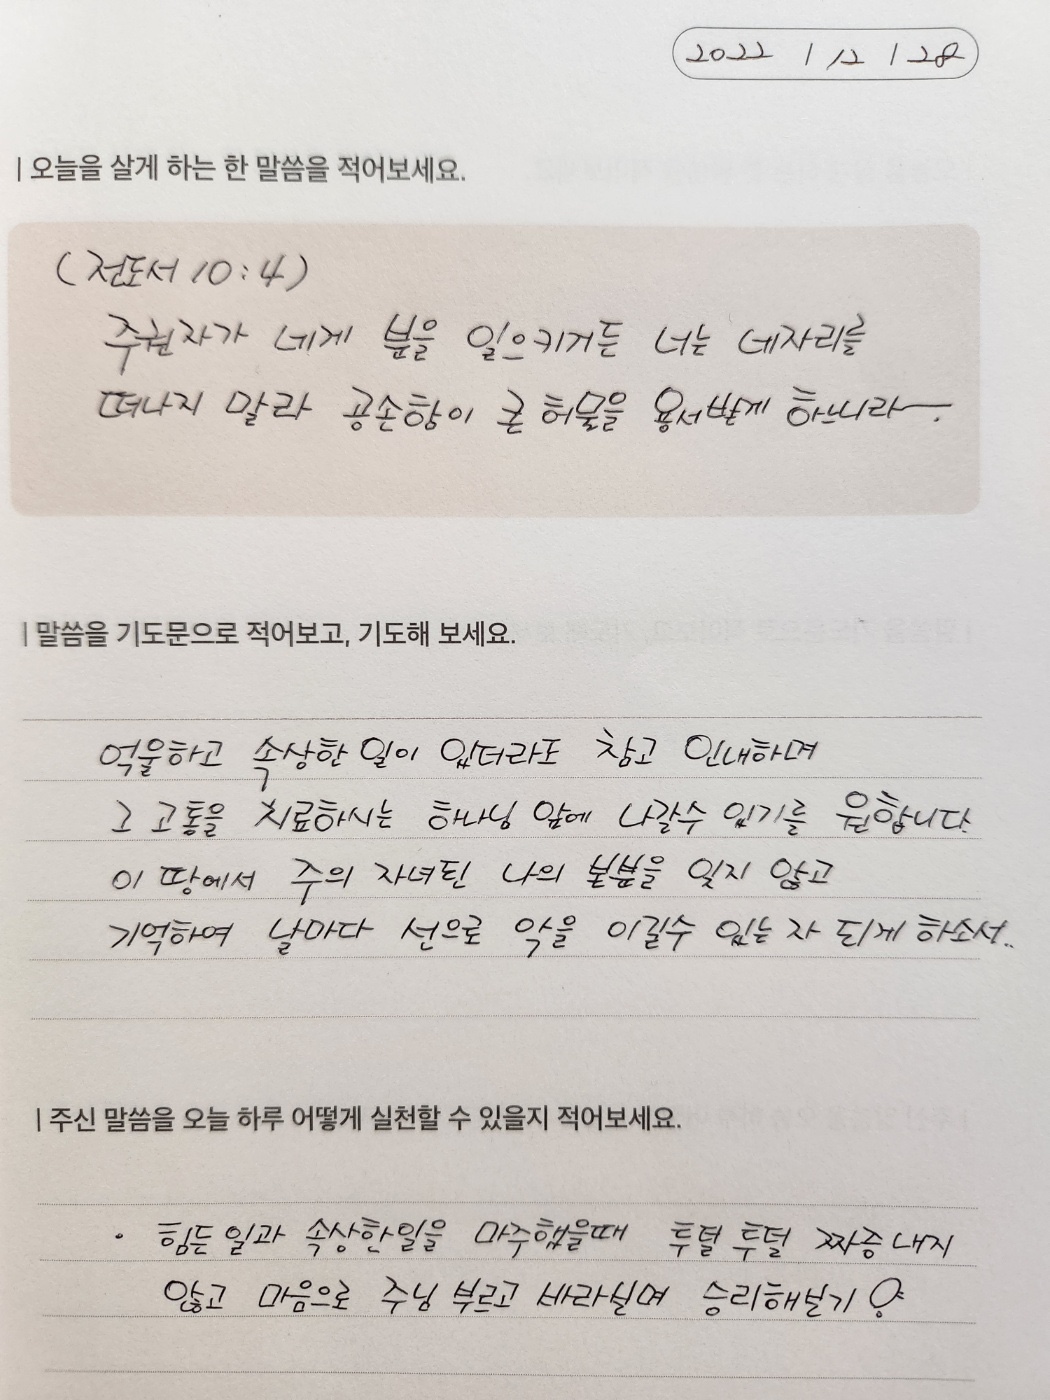 2022 | 12 | 28
| 오늘을 살게 하는 한 말씀을 적어보세요.
(전도서 10:4)
주권자가 네게 분을 일으키거든 너는 네자리를
떠나지 말라 공손함이 큰 허물을 용서받게 하느니라―.
| 말씀을 기도문으로 적어보고, 기도해 보세요.
억울하고 속상한 일이 있더라도 참고 인내하며
그 고통을 치료하시는 하나님 앞에 나갈수 있기를 원합니다.
이 땅에서 주의 자녀된 나의 본분을 잊지 않고
기억하여 날마다 선으로 악을 이길수 있는 자 되게 하소서..
| 주신 말씀을 오늘 하루 어떻게 실천할 수 있을지 적어보세요.
· 힘든 일과 속상한일을 마주했을때 투덜 투덜 짜증내지
않고 마음으로 주님 부르고 바라보며 승리해보기